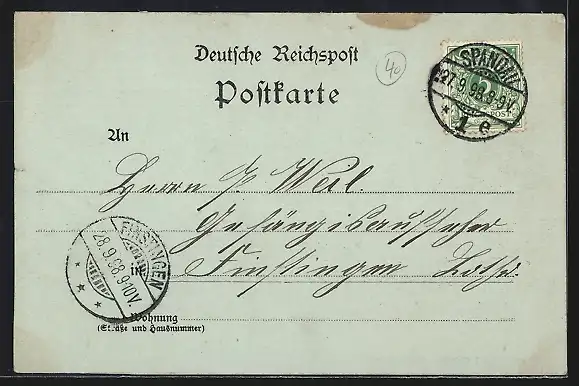 Deutsche Reichspost
Postkarte
40
SPANDAU
27.9.98.8-9V.
* 1 e
POST
An
Herrn P. Weil.
Gefängisaufseher
in Finstingen Lothr.
FINSTINGEN
28.9.98.910V.
Wohnung
(Straße und Hausnummer)